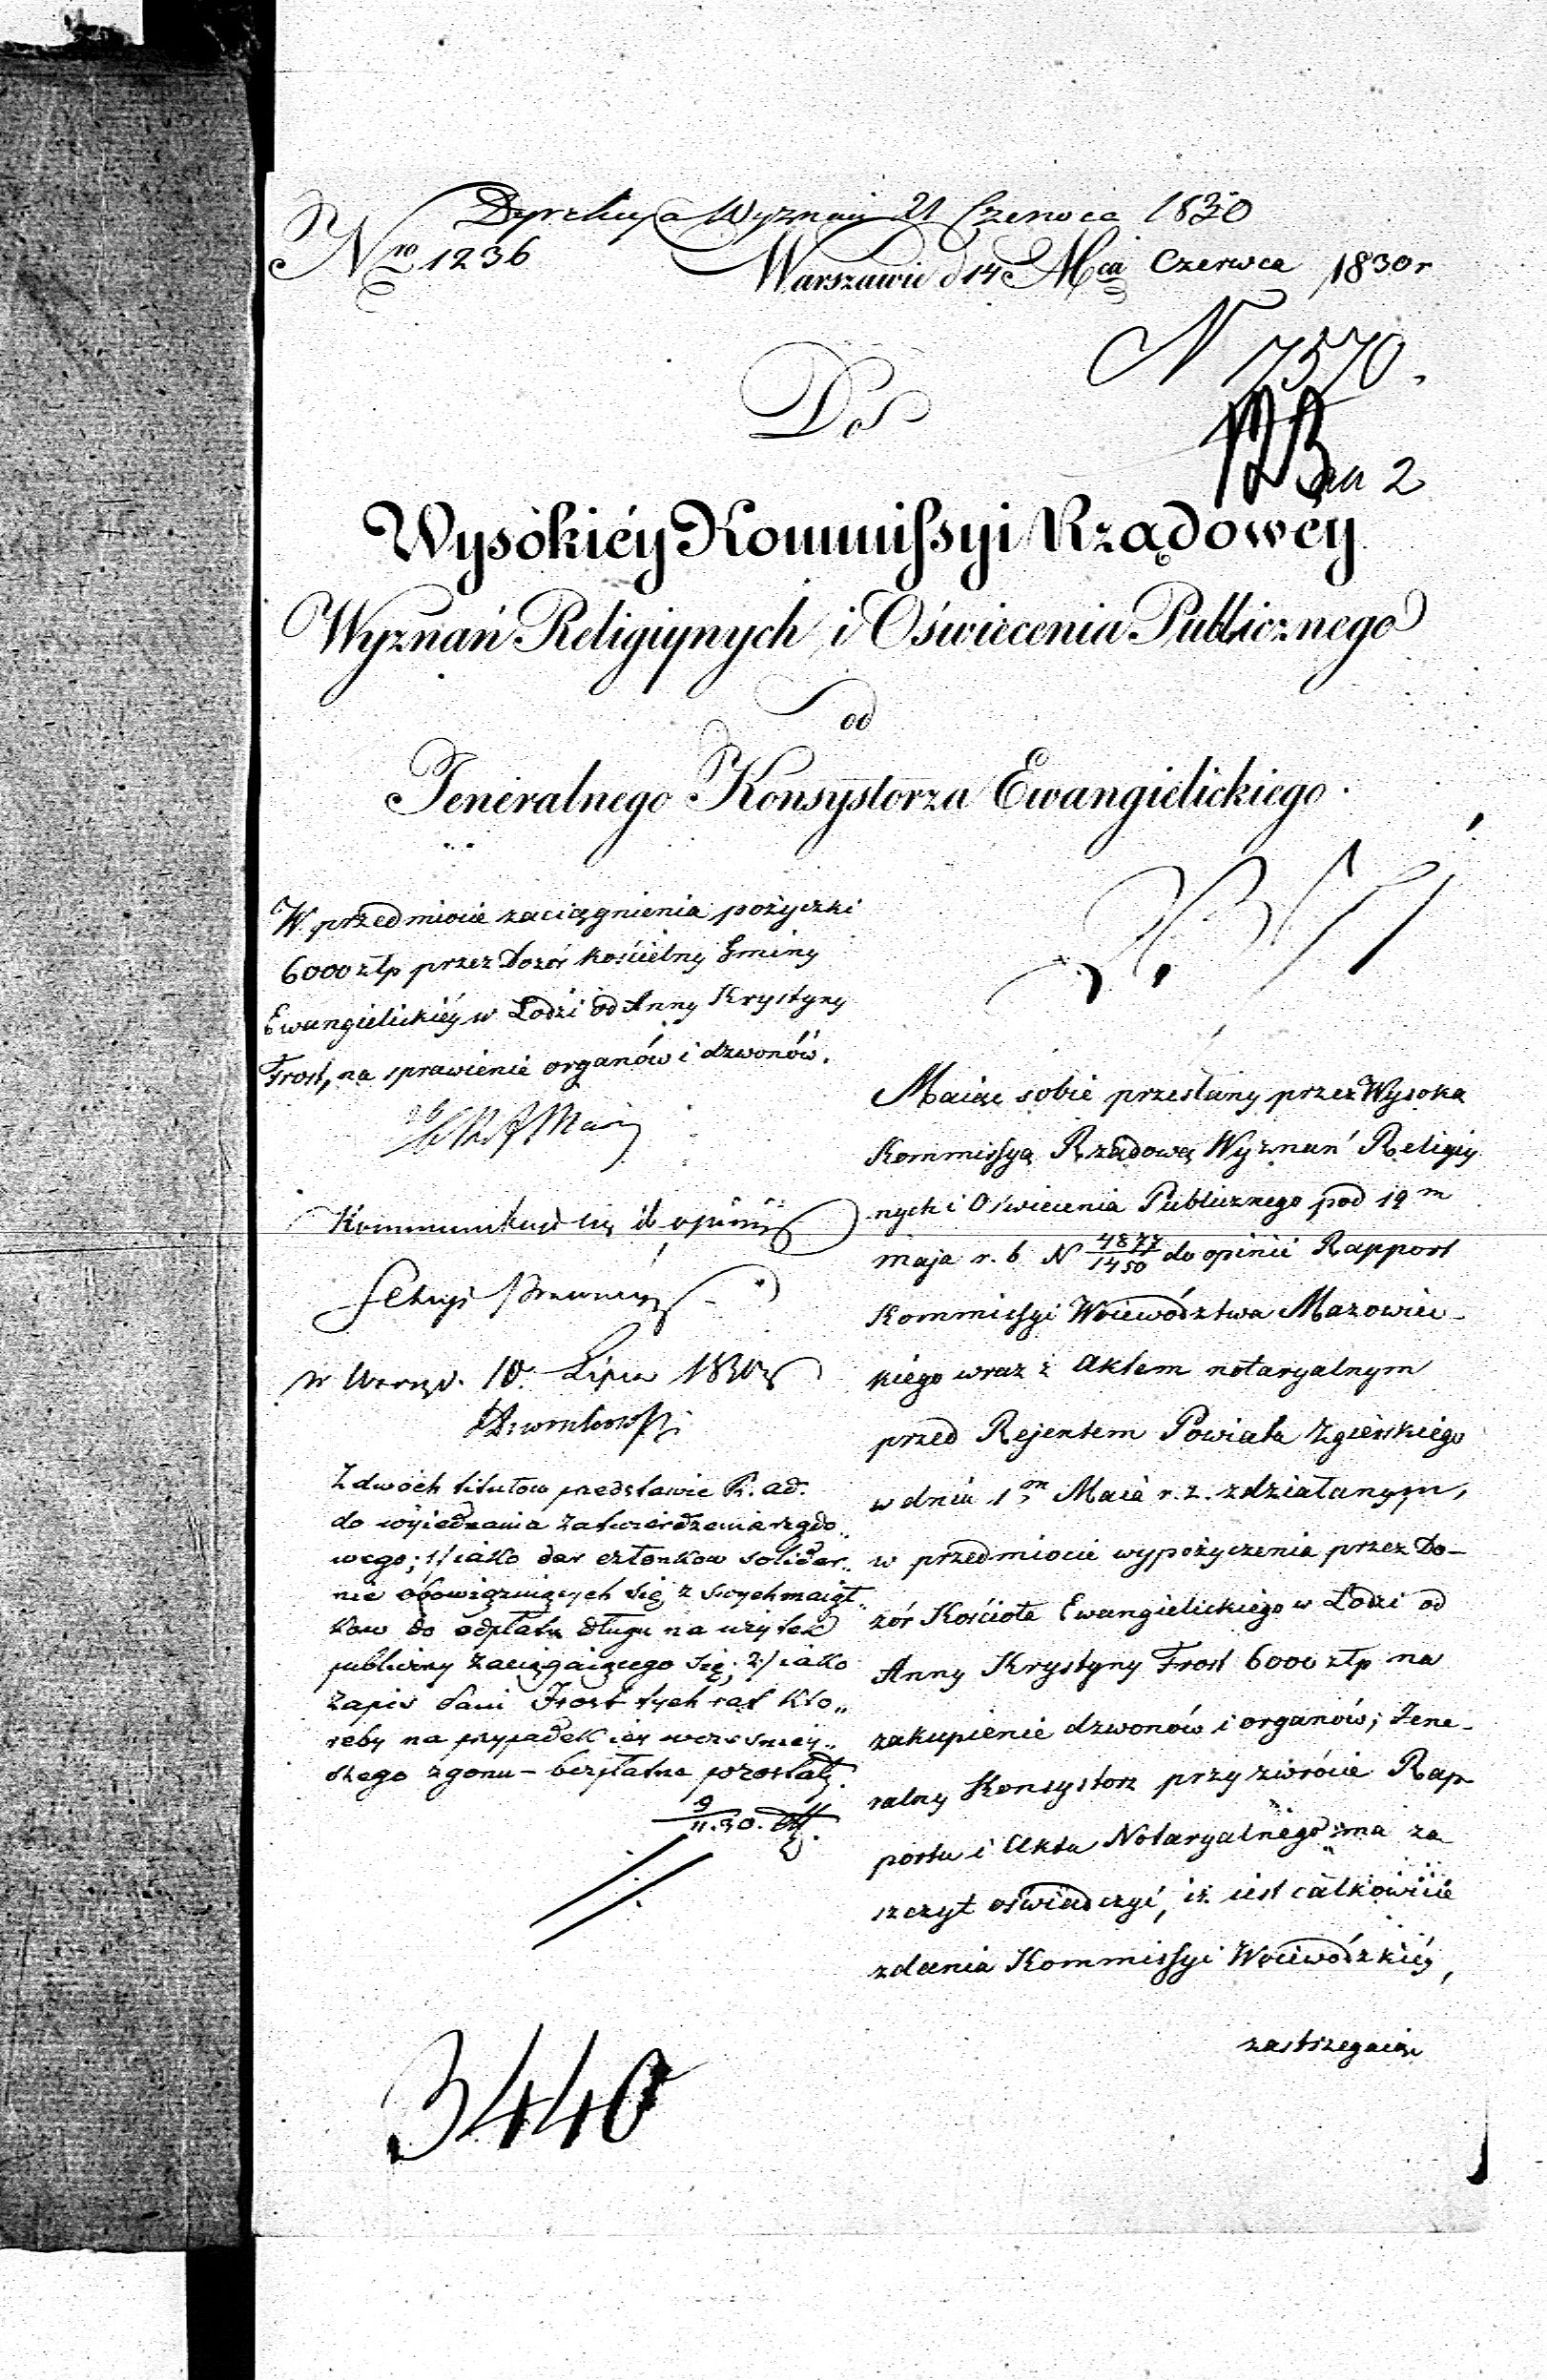 Dyrekcya Wyznań 21 Czerwca 1830
Nro 1236
Warszawie d 14 Mca Czerwca 1830 r
N 7570.
Do
2
Wysokiéy Kommissyi Rządowéy
Wyznań Religiynych i Oświecenia Publicznego
od
Jeneralnego Konsystorza Ewangielickiego.
W przedmiocie zaciągnienia pożyczki
6000 złp przez Dozór kościelny Gminy
Ewangielickiéy w Łodzi od Anny Krystyny
Frost, na sprawienie organów i dzwonów.
Kommunikuie się do opinii
Sekcyi Prawnéy
w Warsz. 10. Lipca 1830
Z dwóch titułow przedstawić R. ad.
do wyiednania zatwierdzenia rządo„
wego; 1/ iako dar członkow solidar„
nie obowiązuiących się z swych maiąt„
kow do odpłatu długu na użytek
publiczny zaciągaiącego się; 2/ iako
zapis Pani Frost tych rat kto„
reby na przypadek iey wczesniey„
szego zgonu – bezpłatne pozostały.
9/11.30.
Maiąc sobie przesłany przez Wysoką
Kommissyą Rządową Wyznań Religiy
nych i Oświecenia Publicznego pod 19 m
maja r. b N 4877/1450 do opinii Rapport
Kommissyi Woiewództwa Mazowiec-
kiego wraz z Aktem notaryalnym
przed Rejentem Powiatu Zgierskiego
w dniu 1 m Maia r. z. zdziałanym,
w przedmiocie wypożyczenia przez Do-
zór Kościoła Ewangielickiego w Łodzi od
Anny Krystyny Frost 6000 złp na
zakupienie dzwonów i organów; Jene-
ralny Konsystorz przy zwrócie Rap-
portu i Aktu Notaryalnego ma za
szczyt oświadczyć, iż iest całkowicie
zdania Kommissyi Woiewódzkiéy,
zastrzegaiąc
3440